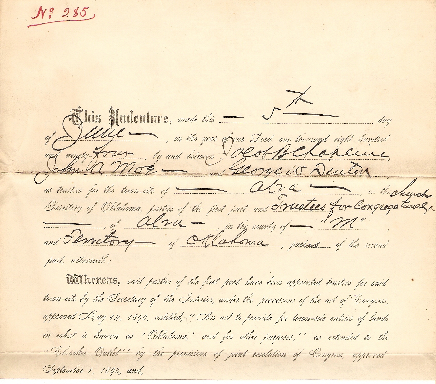 No. 285.
This Indenture, made this — 5th — day
of June —, in the year of our Lord one thousand eight hundred
and ninety four, by and between Jacob A Chapline
John A Moe — George W
as trustees for the town site of — Alva — in the
Territory of Oklahoma, parties of the first part, and Trustees for Congregational Church
— of Alva — in the county of — "M"
and Territory — of Oklahoma, — of the second
part, witnesseth:
Whereas, said parties of the first part have been appointed trustees for said
town site by the Secretary of the Interior, under the provisions of the act of Congress,
approved May 14, 1890, entitled, "An act to provide for townsite entries of lands
in what is known as 'Oklahoma,' and for other purposes," as extended to the
"Cherokee Outlet" by the provisions of joint resolution of Congress, approved
September 1, 1893, and